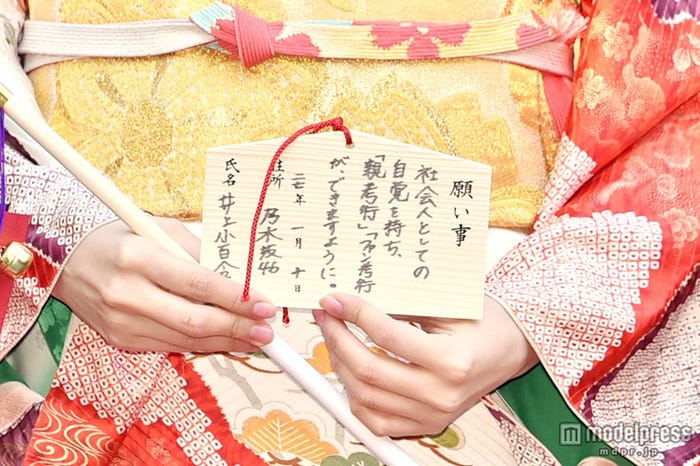 願い事
社会人としての
自覚を持ち、
「親孝行」「ファン孝行」
ができますように。
二七年 一月 十日
住所 乃木坂46
氏名 井上小百合
modelpress
mdpr.jp